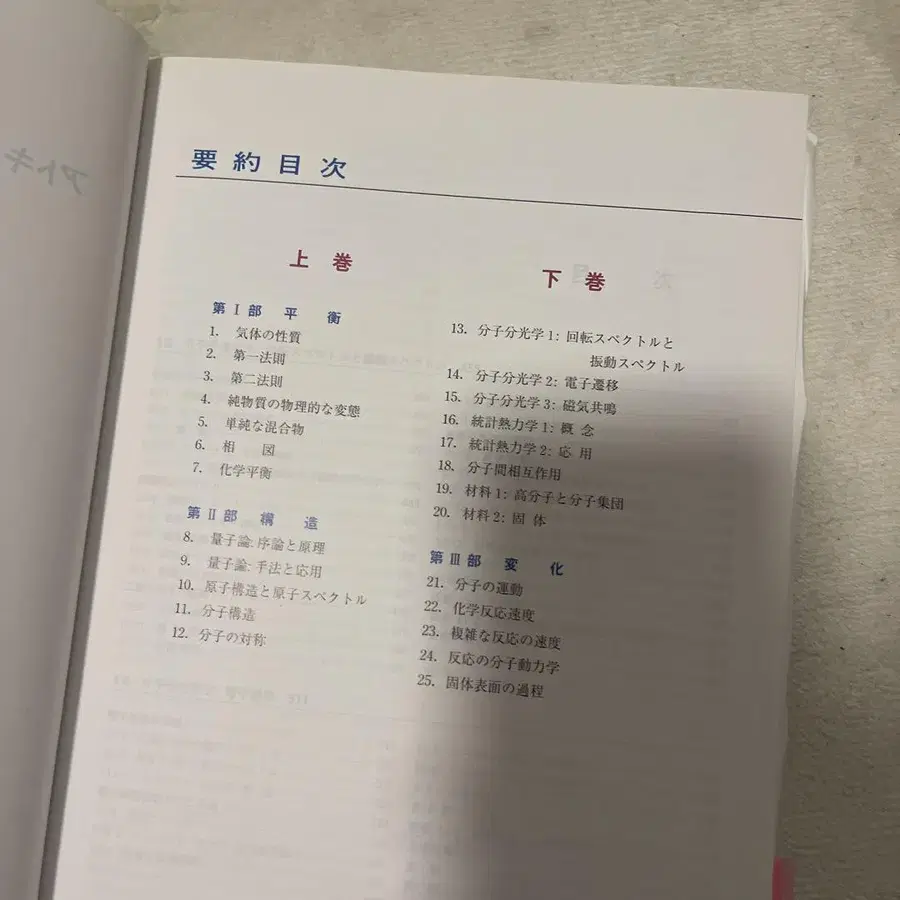 要約目次
上巻
第Ⅰ部 平衡
1. 気体の性質
2. 第一法則
3. 第二法則
4. 純物質の物理的な変態
5. 単純な混合物
6. 相 図
7. 化学平衡
第Ⅱ部 構造
8. 量子論:序論と原理
9. 量子論:手法と応用
10. 原子構造と原子スペクトル
11. 分子構造
12. 分子の対称
下巻
13. 分子分光学1:回転スペクトルと
振動スペクトル
14. 分子分光学2:電子遷移
15. 分子分光学3:磁気共鳴
16. 統計熱力学1:概念
17. 統計熱力学2:応用
18. 分子間相互作用
19. 材料1:高分子と分子集団
20. 材料2:固体
第Ⅲ部 変化
21. 分子の運動
22. 化学反応速度
23. 複雑な反応の速度
24. 反応の分子動力学
25. 固体表面の過程
アトキ